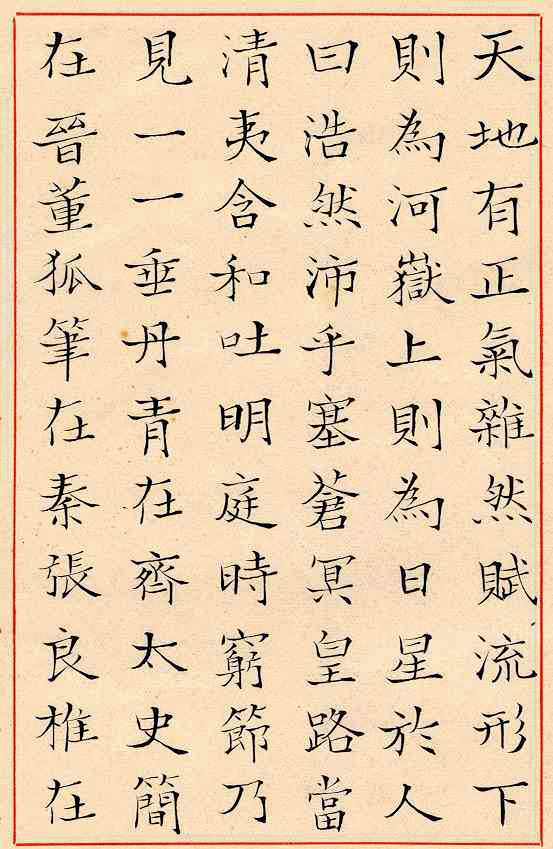 天地有正氣雜然賦流形下
則為河嶽上則為日星於人
曰浩然沛乎塞蒼冥皇路當
清夷含和吐明庭時窮節乃
見一一垂丹青在齊太史簡
在晉董狐筆在秦張良椎在